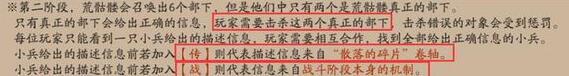 ※第二阶段，荒骷髅会召唤出6个部下，但是他们中只有两个是荒骷髅真正的部下。
只有真正的部下会给出正确的信息，玩家需要击杀这两个真正的部下，击杀错误的对象会受到惩罚。
每位玩家只能看到一只小兵给出的描述信息，玩家需要相互合作，找到全部给出正确信息的小兵。
小兵给出的描述信息前若加入【传】则代表描述信息来自“散落的碎片”卷轴。
小兵给出的描述信息前若加入【战】则代表信息来自战斗阶段本身的机制。